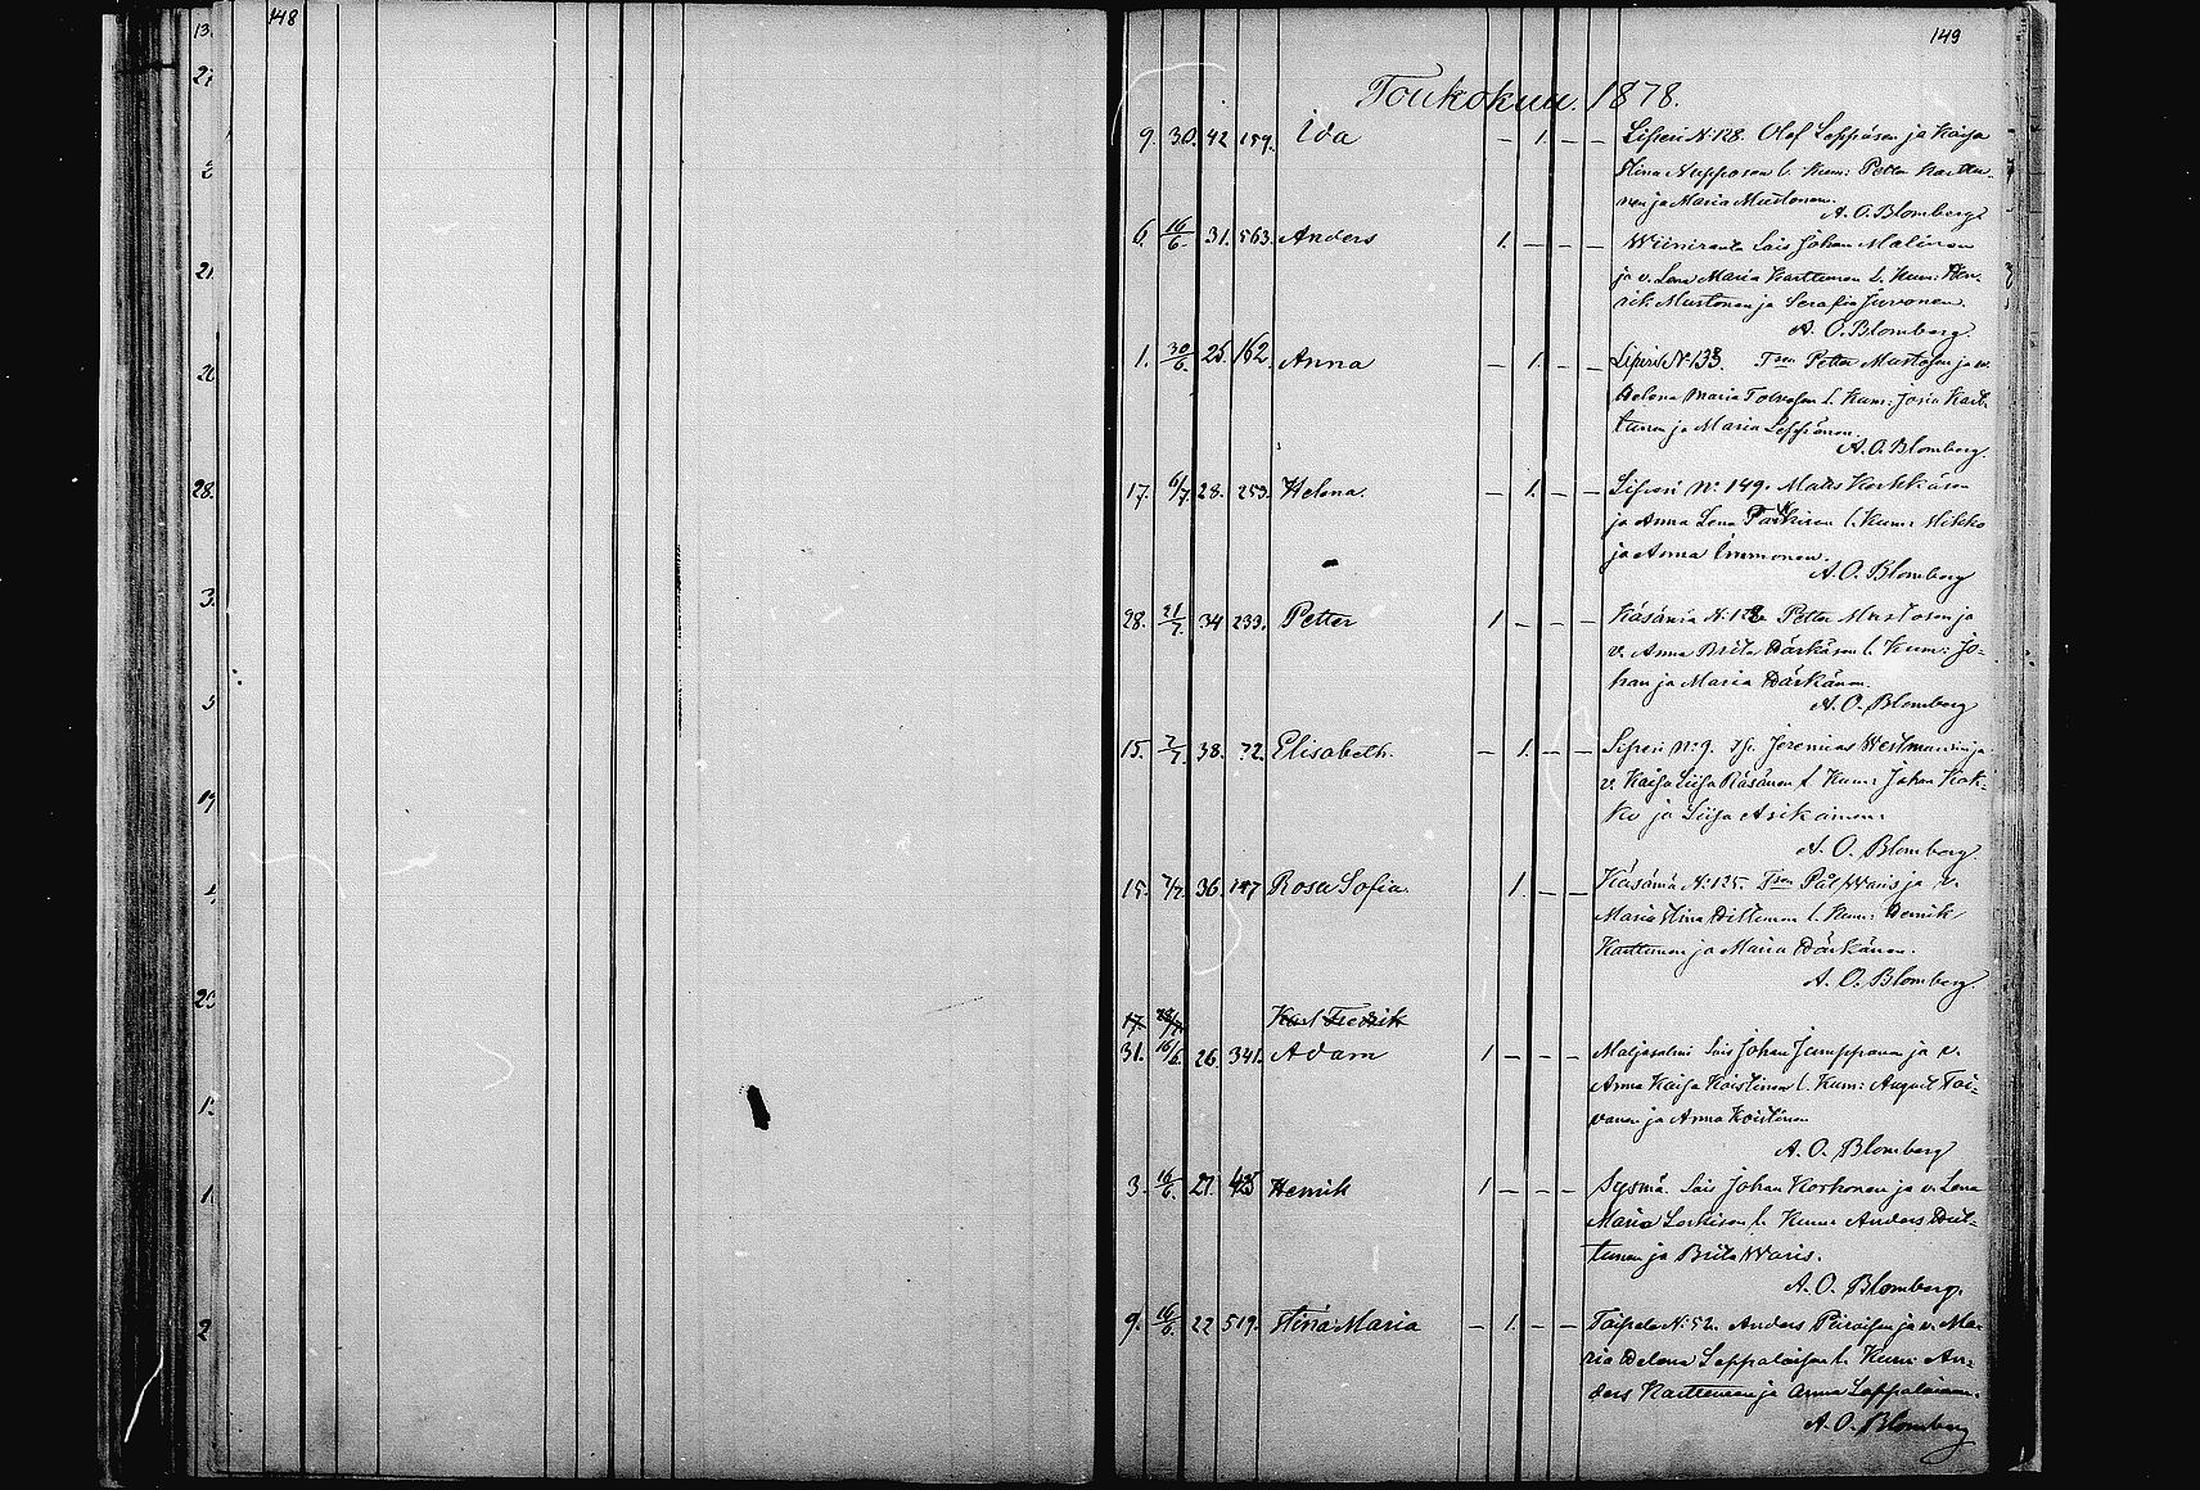 148
13.
27
21
28.
3.
149
Toukokuu. 1878.
9. 30. 42 159. Ida — 1. — — Liperi N:128. Olof Leppäsen ja Kaisa
Stina Nupposen l. Kum: Petter Karttu-
nen ja Maria Mustonen.
A. O. Blomberg
6. 16/6. 31. 563. Anders 1. — — — Wiiniranta Lois Johan Malinen
ja v. Lena Maria Karttunen l. Kum: Hen-
rik Mustonen ja Serafia Juvonen.
A. O. Blomberg.
1. 30/6. 25. 162. Anna — 1. — — Liperi N:133. Petter Mustosen ja v.
Helena Maria l. Kum: Josia Kart-
tunen ja Maria Leppänen.
A. O. Blomberg.
17. 6/7. 28. 253. Helena. — 1. — — Liperi N: 149. Mats
ja Anna Lena l. Kum: Mikko
ja Anna Immonen.
A. O. Blomberg
28. 21/7. 34 233. Petter 1 — — — Käsämä Petter Mustosen ja
v. Anna Brita Härkäsen l. Kum: Jo-
han ja Maria Härkänen.
A. O. Blomberg
15. 7/7. 38. 72. Elisabeth. — 1. — — Liperi N:9. Jeremias Westmannin ja
v. Kaisa Liisa Räsänen l. Kum: Johan Kok-
ko ja Liisa Asikainen.
A. O. Blomberg.
15. 7/7. 36. 147 Rosa Sofia. 1. — — Käsämä N:125. Pål Waris ja v.
Maria Stina l. Kum: Henrik
Karttunen ja Maria Härkänen.
A. O. Blomberg.
17. 28/7. Karl Fredrik
31. 16/6. 26. 341. Adam 1 — — — Maljasalmi Lois Johan Jumppanen ja v.
Anna Kaisa Koistinen l. Kum: August Toi-
vanen ja Anna Koistinen
A. O. Blomberg
3. 16/6. 21. Henrik 1 — — — Sysmä. Lois Johan Korhonen ja v. Lena
Maria l. Kum: Anders Hut-
tunen ja Brita Waris.
A. O. Blomberg.
9. 16/6. 22 519. Stina Maria — 1. — — Taipale N:52. Anders Piiroisen ja v. Ma-
ria Helena Lappalaisen l. Kum: An-
ders Karttunen ja Anna Lappalainen.
A. O. Blomberg